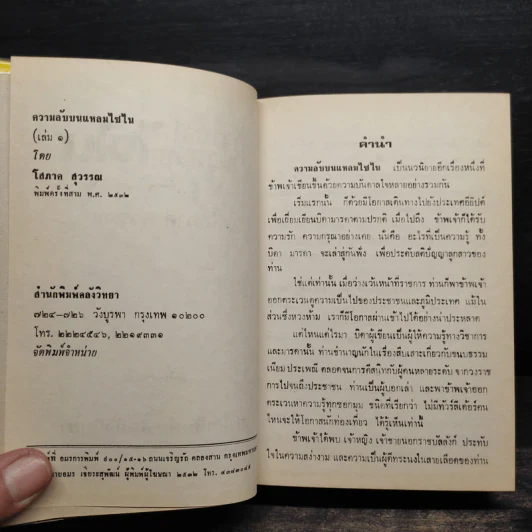 ความลับบนแหลมไซไน
(เล่ม ๑)
โดย
โสภาค สุวรรณ
พิมพ์ครั้งที่สาม พ.ศ. ๒๕๓๒
สำนักพิมพ์คลังวิทยา
๗๒๔-๗๒๖ วังบูรพา กรุงเทพ ๑๐๒๐๐
โทร. ๒๒๒๔๕๔๖, ๒๒๑๙๓๓๑
จัดพิมพ์จำหน่าย
ที่ อมรการพิมพ์ ๙๐๐/๑๕-๑๖ ถนนเจริญรัถ คลองสาน
ผู้พิมพ์ผู้โฆษณา ๒๕๓๒ โทร.
คำนำ
ความลับบนแหลมไซไน เป็นนวนิยายอีกเรื่องหนึ่งที่
ข้าพเจ้าเขียนขึ้นด้วยความบันดาลใจหลายอย่างรวมกัน
เริ่มแรกนั้น ก็ด้วยมีโอกาสเดินทางไปยังประเทศอียิปต์
เพื่อเยี่ยมเยียนบิดามารดาตามปรกติ เมื่อไปถึง ข้าพเจ้าก็ได้รับ
ความรัก ความกรุณาอย่างเคย นั่นคือ อะไรที่เป็นความรู้ ทั้ง
บิดา มารดา จะเล่าสู่กันฟัง เพื่อประดับสติปัญญาลูกสาวของ
ท่าน
ใช่แต่เท่านั้น เมื่อว่างเว้นหน้าที่ราชการ ท่านก็พาข้าพเจ้า
ออกตระเวนดูความเป็นไปของประชาชนและภูมิประเทศ แม้ใน
ส่วนซึ่งหวงห้าม เราก็มีโอกาสผ่านเข้าไปได้อย่างน่าประหลาด
แต่ไหนแต่ไรมา บิดาผู้เขียนเป็นผู้ให้ความรู้ทางวิชาการ
และมารดานั้น ท่านชำนาญนักในเรื่องสืบเสาะเกี่ยวกับขนบธรรม
เนียมประเพณี ตลอดจนการตีสนิทกับผู้คนหลายระดับ จากวงราช
การไปจนถึงประชาชน ท่านเป็นผู้บอกเล่า และพาข้าพเจ้าออก
ตระเวนหาความรู้ทุกซอกมุม ชนิดที่เรียกว่า ไม่มีทัวร์ลีดเดอร์คน
ไหนจะให้โอกาสนักท่องเที่ยว ได้รู้เห็นเท่านี้
ข้าพเจ้าได้พบ เจ้าหญิง เจ้าชายนอกราชบัลลังก์ ประทับ
ใจในความสง่างาม และความเป็นผู้ดีที่ทรงนงในสายเลือดของท่าน